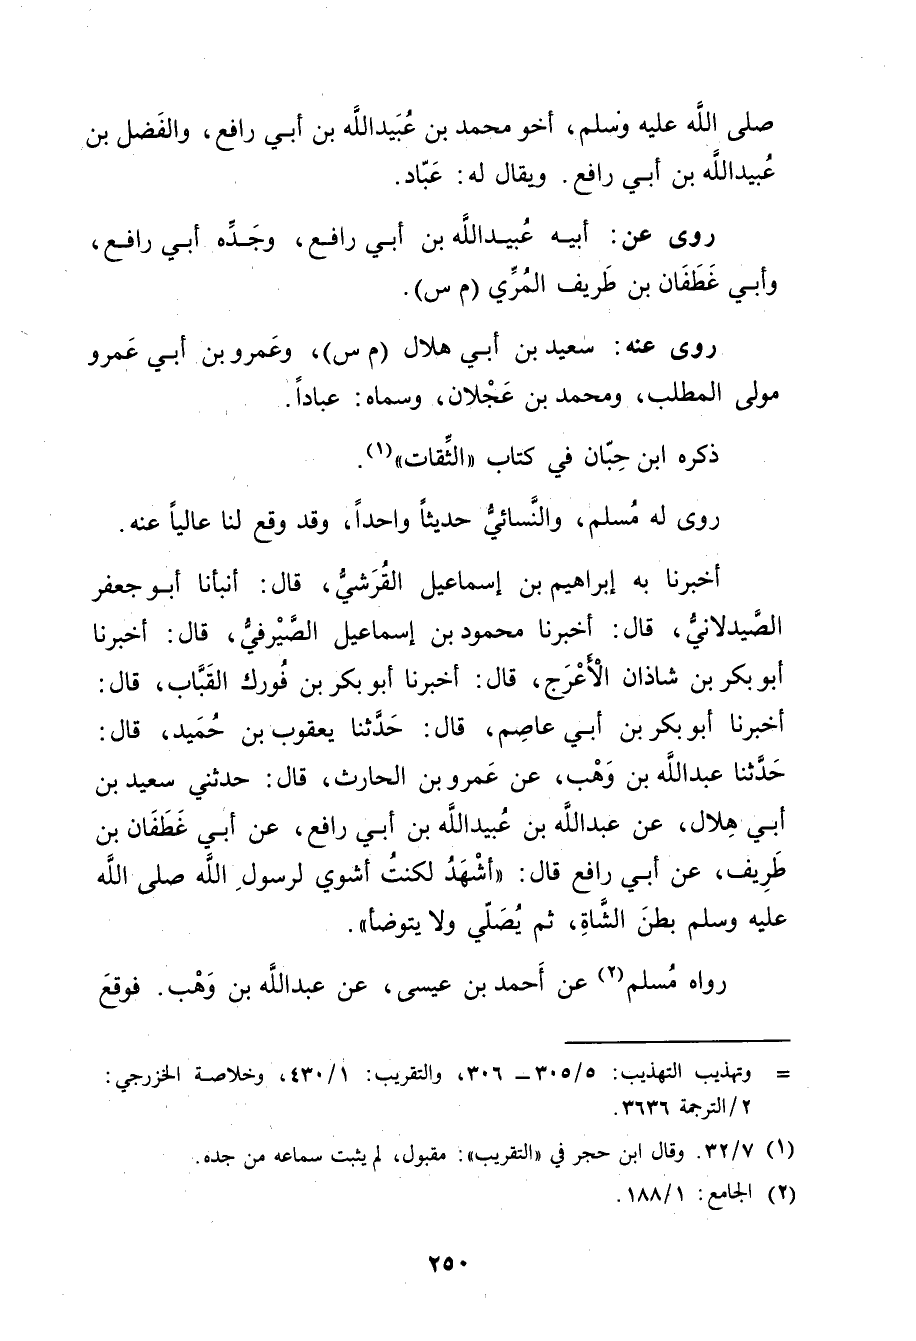 صلى اللَّه عليه وسلم، أخو محمد بن عُبَيداللَّه بن أبي رافع، والفَضل بن
عُبيداللَّه بن أبي رافع. ويقال له: عَبّاد.
روى عن: أبيه عُبيداللَّه بن أبي رافع، وجَدِّه أبي رافع،
وأبي غَطَفَان بن طَريف المُرِّي (م س).
روى عنه: سعيد بن أبي هلال (م س)، وعَمرو بن أبي عَمرو
مولى المطلب، ومحمد بن عَجْلان، وسماه: عباداً.
ذكره ابن حِبّان في كتاب «الثِّقات»(١).
روى له مُسلم، والنَّسائيُّ حديثاً واحداً، وقد وقع لنا عالياً عنه.
أخبرنا به إبراهيم بن إسماعيل القُرَشيُّ، قال: أنبأنا أبو جعفر
الصَّيدلانيُّ، قال: أخبرنا محمود بن إسماعيل الصَّيْرفيُّ، قال: أخبرنا
أبو بكر بن شاذان الْأَعْرَج، قال: أخبرنا أبو بكر بن فُورك القَبَّاب، قال:
أخبرنا أبو بكر بن أبي عاصِم، قال: حَدَّثنا يعقوب بن حُمَيد، قال:
حَدَّثنا عبداللَّه بن وَهْب، عن عَمرو بن الحارث، قال: حدثني سعيد بن
أبي هِلال، عن عبداللَّه بن عُبيداللَّه بن أبي رافع، عن أبي غَطَفَان بن
طَرِيف، عن أبي رافع قال: «أشْهَدُ لكنتُ أشوي لرسولِ اللَّه صلى اللَّه
عليه وسلم بطنَ الشَّاةِ، ثم يُصَلّي ولا يتوضأ».
رواه مُسلم(٢) عن أَحمد بن عيسى، عن عبداللَّه بن وَهْب. فوقعَ
= وتهذيب التهذيب: ٣٠٥/٥ - ٣٠٦، والتقريب: ٤٣٠/١، وخلاصة الخزرجي:
٢/الترجمة ٣٦٣٦.
(١) ٣٢/٧. وقال ابن حجر في «التقريب»: مقبول، لم يثبت سماعه من جده.
(٢) الجامع: ١٨٨/١.
٢٥٠